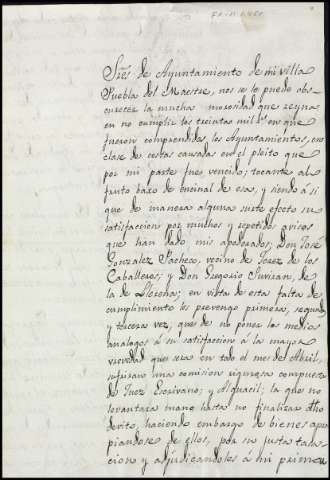 Sres de Ayuntamiento de mi villa
Puebla del Maestre, nos se le puede obs-
curecer la mucha morosidad que reyna
en no cumplir los treinta mil Rs en que
fueron comprendidos los Ayuntamientos, en
clase de costas causadas en el pleito que
por mi parte fues vencido; tocante al
fruto baxo de encinal de esas, y siendo asi
que de manera alguna surte efecto su
satisfaccion por muchos y repetidos avisos
que han dado mis apoderados; Don José
Gonzalez Pacheco, vecino de Jerez de los
Caballeros; y Don Gregorio de
la de Llerena; en vista de esta falta de
cumplimiento les prevengo primera, segunda
y tercera vez, que de no poner los medios
analogos á su satisfaccion á la mayor
vrevedad que sera en todo el mes de Abril,
sufriran una comision rigurosa compuesta
de Juez Escrivano; y Alguacil; la que no
levantara mano hasta no finalizar dho
devito, haciendo embargo de bienes apro
piandose de ellos, por su justa tasa-
cion y adjudicandoles á mi primer